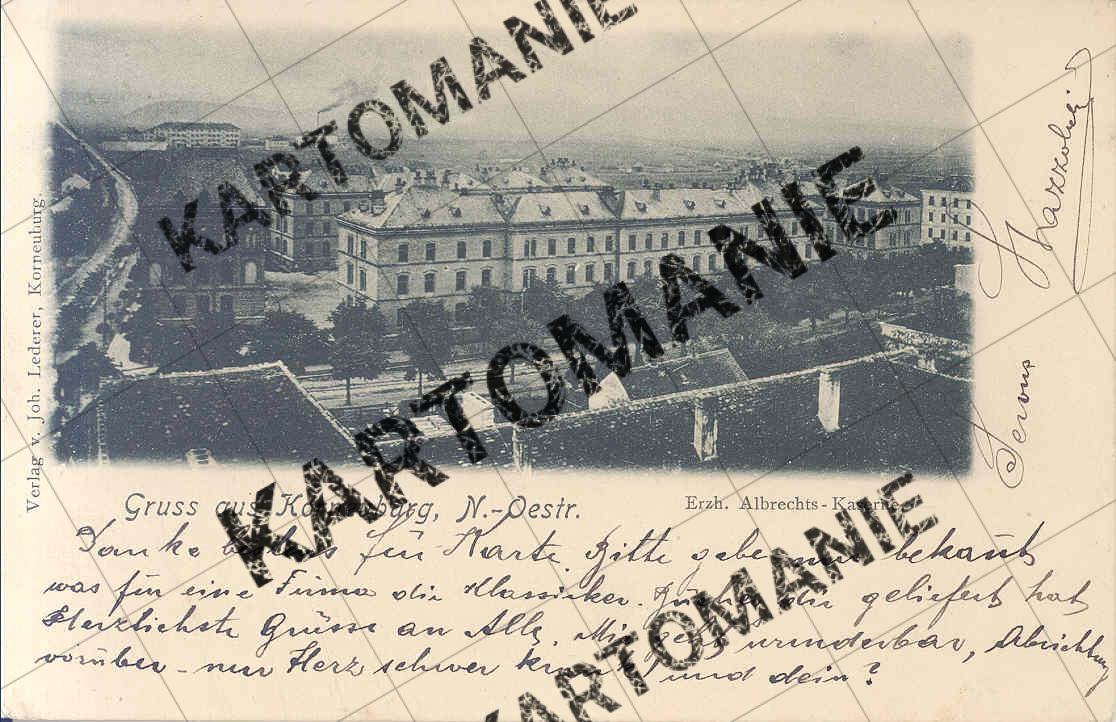 KARTOMANIE
KARTOMANIE
KARTOMANIE
KARTOMANIE
Verlag v. Joh. Lederer, Korneuburg.
Gruss aus Korneuburg, N.-Oestr.
Erzh. Albrechts-Kaserne
Danke bestens für Karte. Bitte gebe mir bekannt
was für eine Firma die Klassiker Bücher dir geliefert hat
Herzlichste Grüsse an Alle. Mir geht wunderbar, Abrichtung
vorüber - nur Herz schwer krank und dein?
Servus